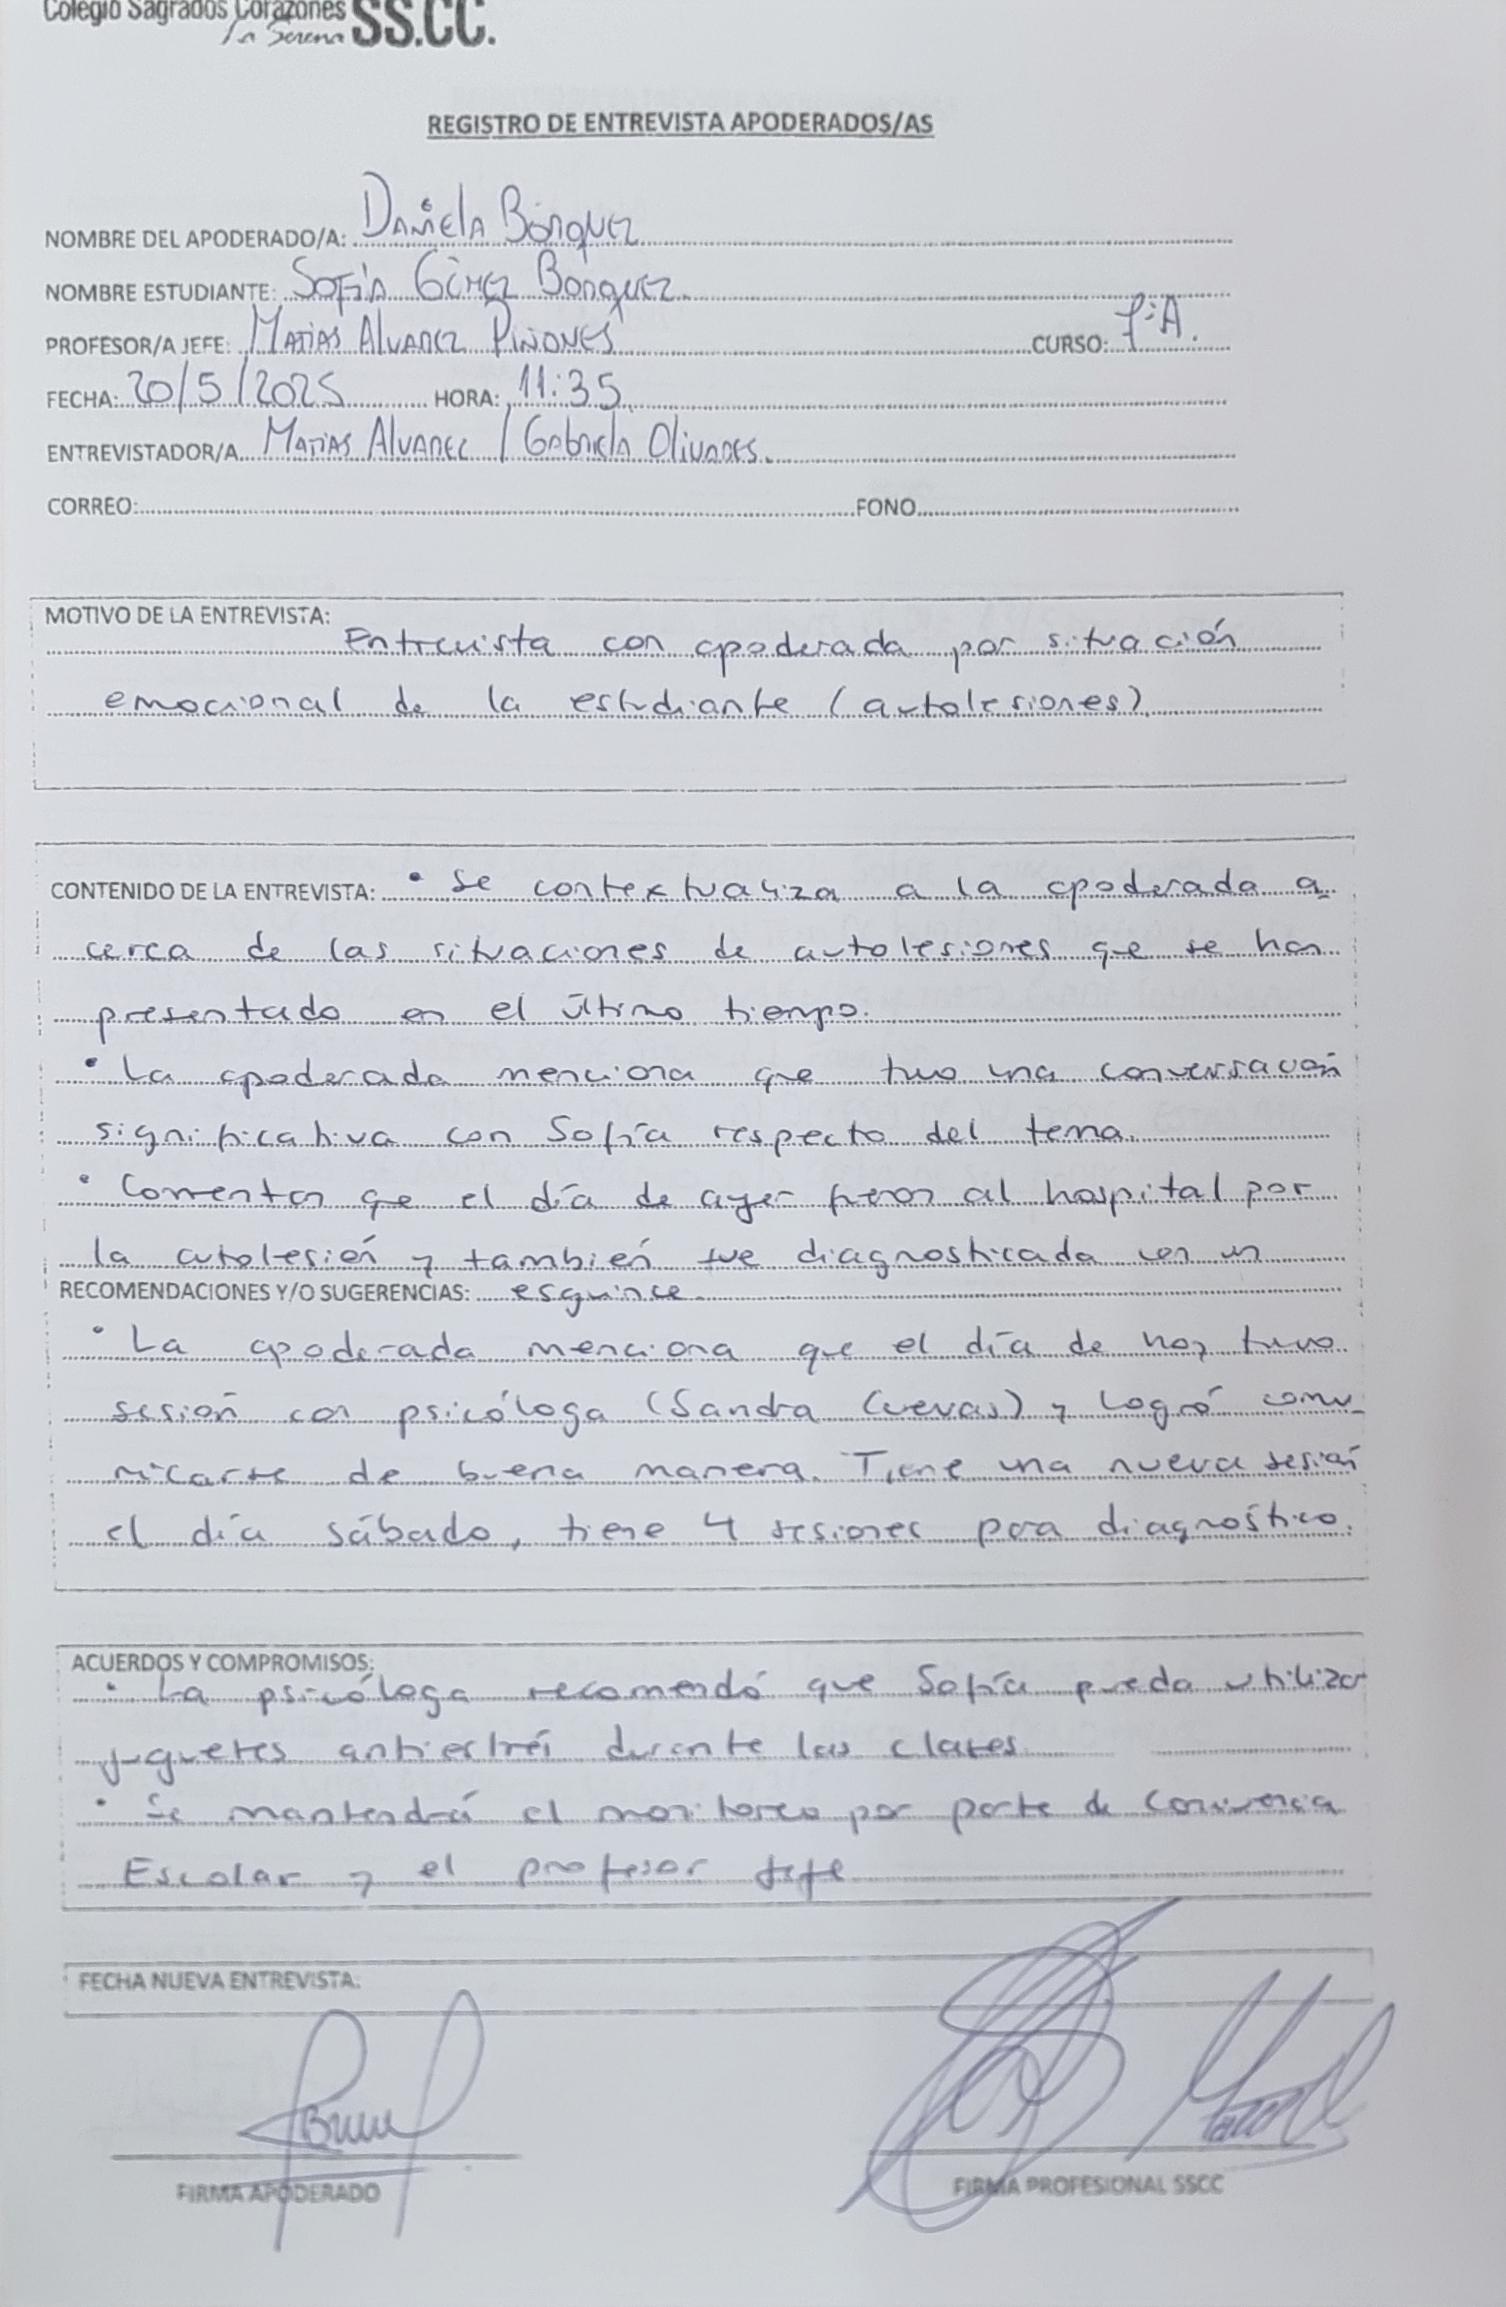 Colegio Sagrados Corazones SS.CC.
La Serena
REGISTRO DE ENTREVISTA APODERADOS/AS
NOMBRE DEL APODERADO/A: Daniela Bórquez
NOMBRE ESTUDIANTE: Sofía Gómez Borquez.
PROFESOR/A JEFE: Matias Alvarez Piñones CURSO: 7°A.
FECHA: 20/5/2025 HORA: 11:35
ENTREVISTADOR/A Matias Alvarez / Gabriela Olivares.
CORREO: FONO
MOTIVO DE LA ENTREVISTA:
Entrevista con apoderada por situación
emocional de la estudiante (autolesiones)
CONTENIDO DE LA ENTREVISTA: • Se contextualiza a la apoderada a
cerca de las situaciones de autolesiones que se han
presentado en el último tiempo.
• La apoderada menciona que tuvo una conversación
significativa con Sofía respecto del tema.
• Comentan que el día de ayer fueron al hospital por
la autolesión y también fue diagnosticada con un
RECOMENDACIONES Y/O SUGERENCIAS: esguince.
• La apoderada menciona que el día de hoy tuvo
sesión con psicóloga (Sandra Cuevas) y logró comu-
nicarse de buena manera. Tiene una nueva sesión
el día sábado, tiene 4 sesiones para diagnóstico.
ACUERDOS Y COMPROMISOS:
• La psicóloga recomendó que Sofía pueda utilizar
juguetes antiestrés durante las clases
• Se mantendrá el monitoreo por parte de Convivencia
Escolar y el profesor jefe
FECHA NUEVA ENTREVISTA:
FIRMA APODERADO FIRMA PROFESIONAL SSCC